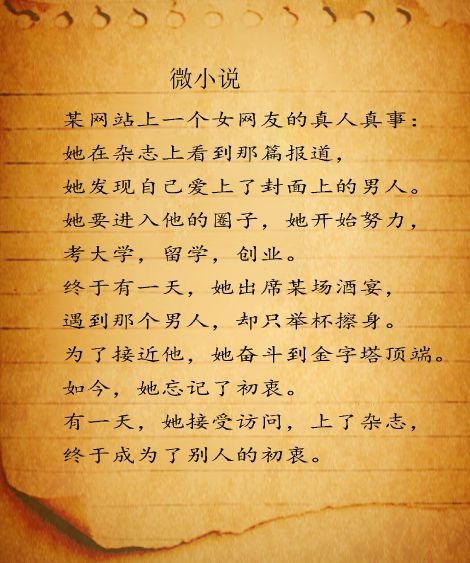 微小说
某网站上一个女网友的真人真事：
她在杂志上看到那篇报道，
她发现自己爱上了封面上的男人。
她要进入他的圈子，她开始努力，
考大学，留学，创业。
终于有一天，她出席某场酒宴，
遇到那个男人，却只举杯擦身。
为了接近他，她奋斗到金字塔顶端。
如今，她忘记了初衷。
有一天，她接受访问，上了杂志，
终于成为了别人的初衷。